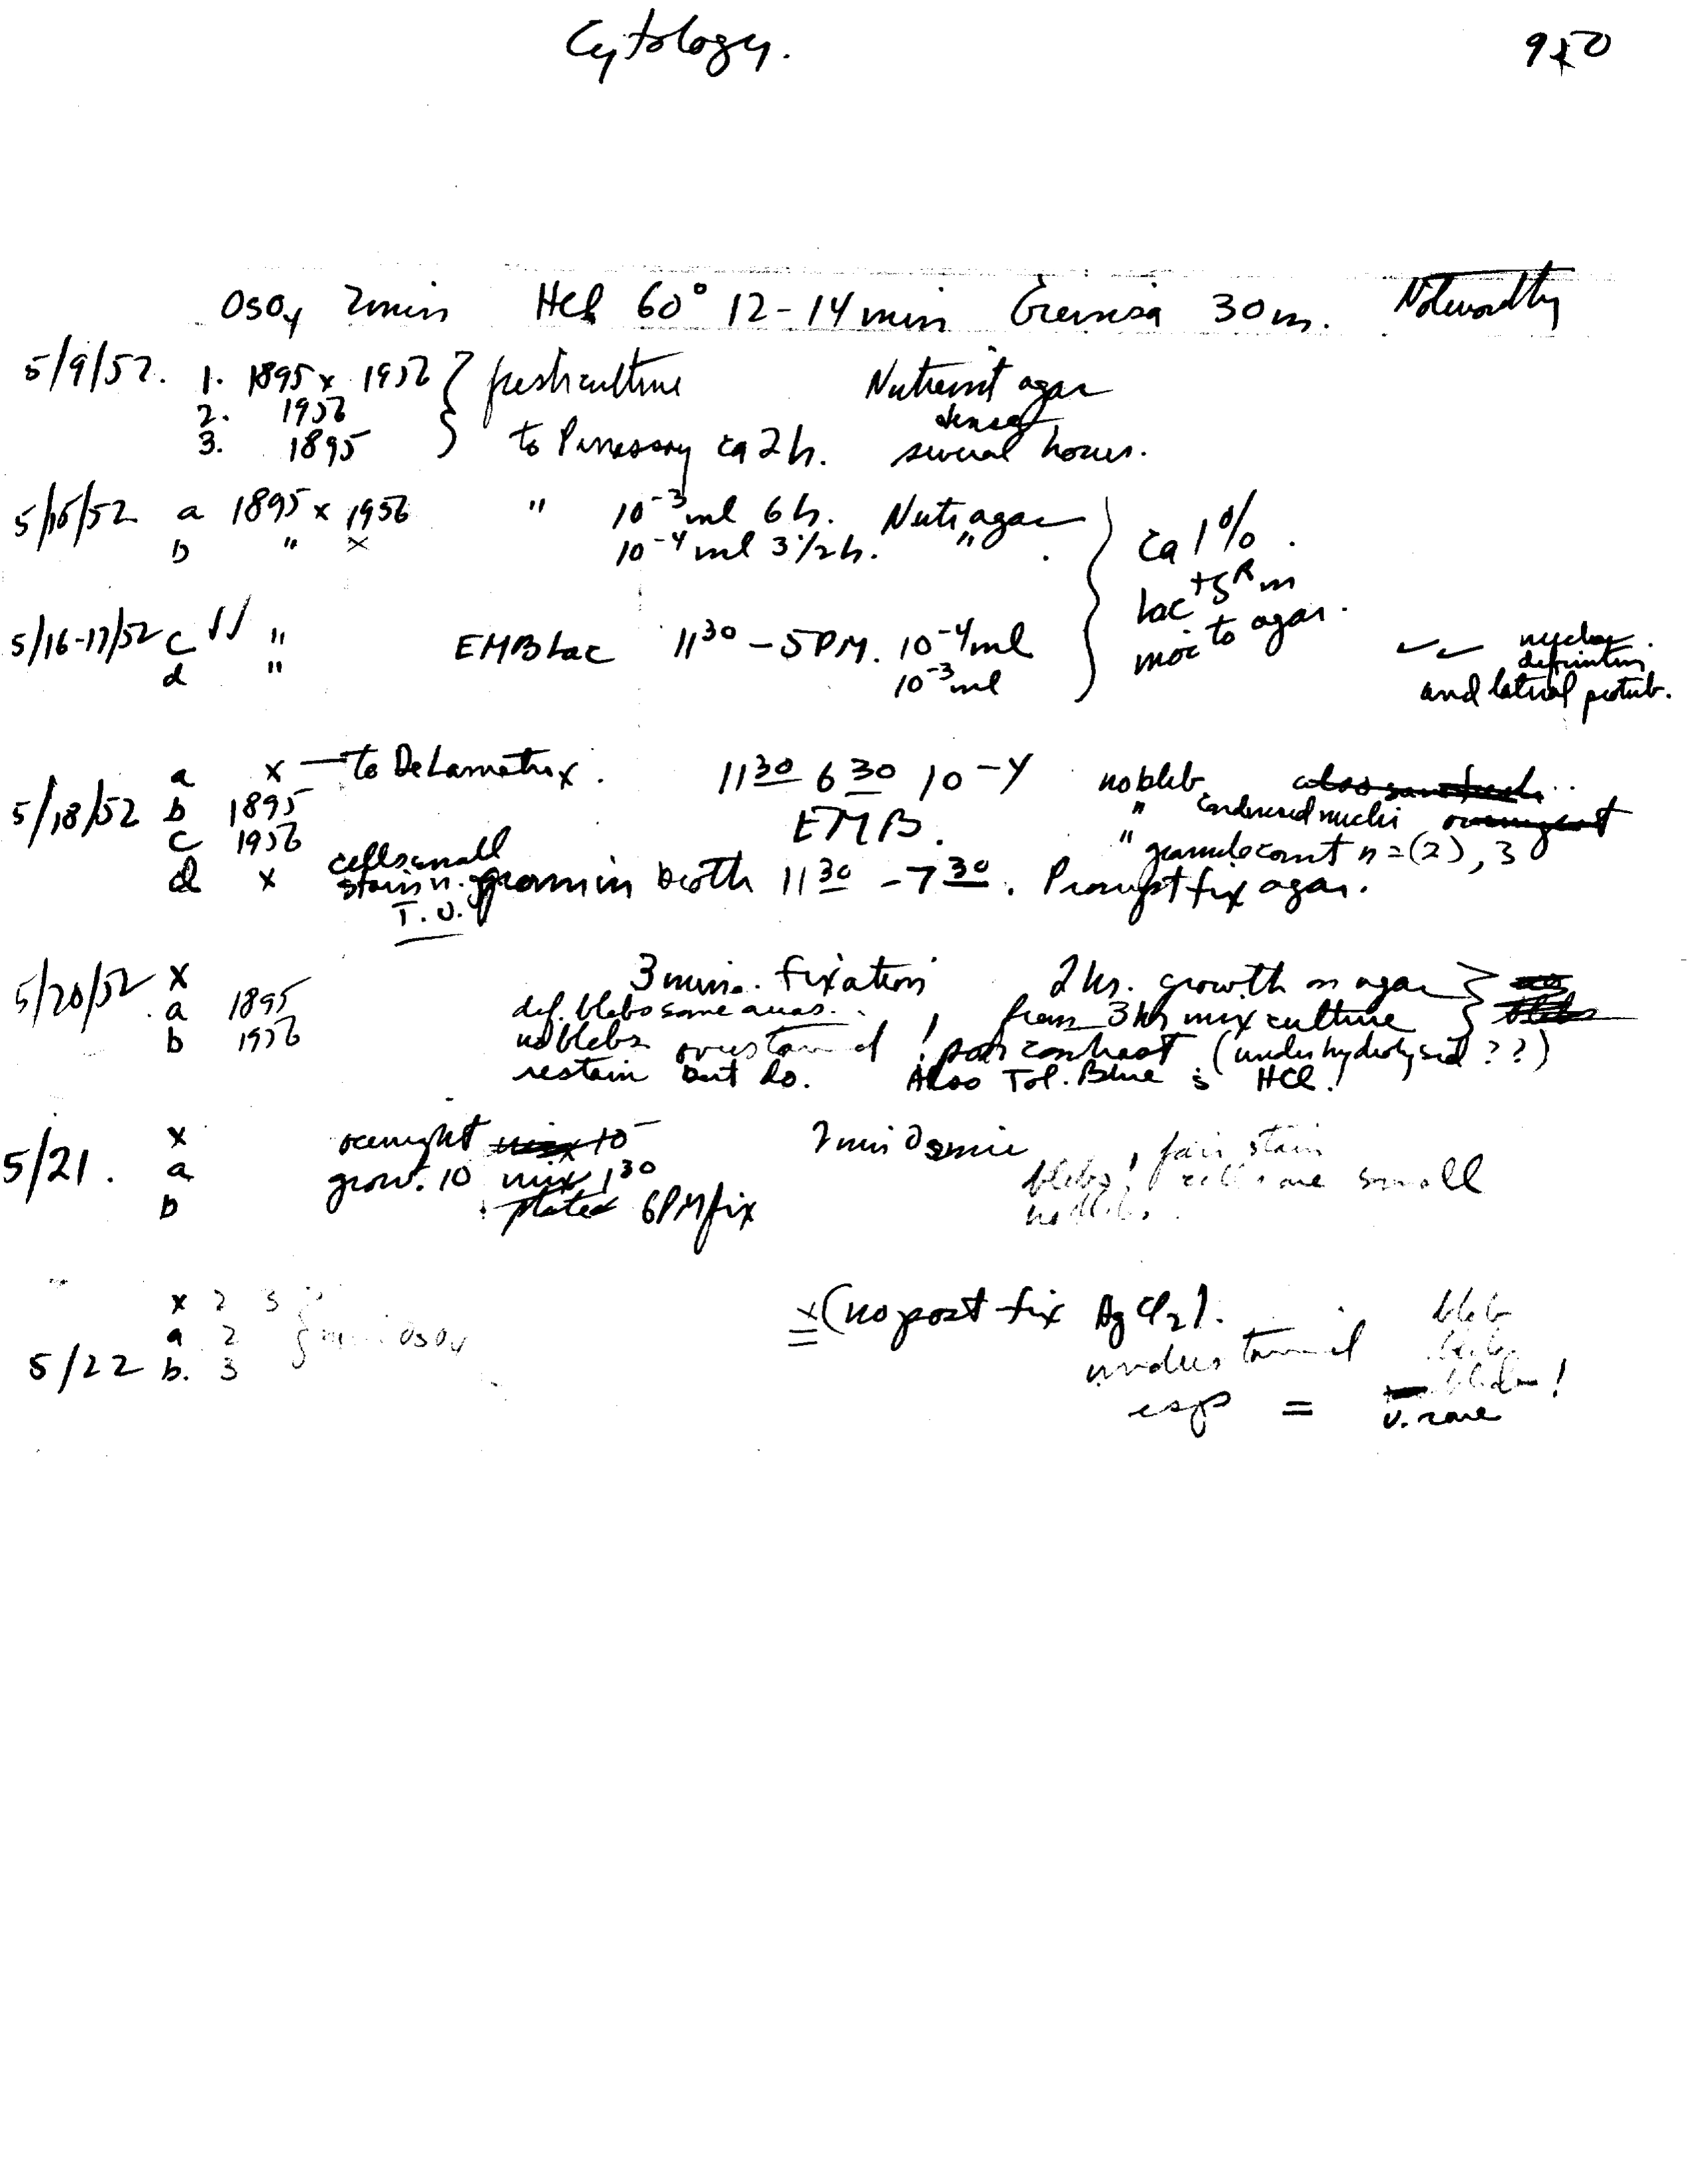 Cytology.
950
OsO4 2min HCl 60° 12-14 min Giemsa 30 m. Noteworthy
5/9/52. 1. 1895 x 1956 } fresh culture Nutrient agar
2. 1956 dense
3. 1895 to Penassay ca 2 h. several hours.
a 1895 x 1956 " 10-3 ml 6 h. Nutr agar
b " x 10-4 ml 3 1/2 h. " .
ca 1% .
lac + SR in
to agar.
5/16-17/52 c √√ " EMB Lac 11 30 - 5 PM. 10-4 ml
d " 10-3 ml
✓ ✓ nuclear
definition
and lateral protub.
5/18/52 a x — to DeLamater. 11 30 6 30 10-4 no bleb
b 1895 EMB. " condensed nuclei
c 1956 " granule count n = (2), 3
d x cells small
stain n.g. grown in broth 11 30 - 7 30. Prompt fix agar.
T.O.
5/20/52 x 3 mins. fixation 2 hrs. growth on agar }
a 1895 def. blebs some areas. from 3 hr mix culture
b 1956 no blebs overstained! poor contrast (underhydrolysed ??)
restain but do. Also Tol. Blue s HCl!
5/21. x overnight 10- 2 min Osmic fair stain
a grow. 10 mix 1 30 blebs! cells are small
b plated 6PM fix no blebs.
x 2 3
a 2 } min OsO4
5/22 b. 3
x (no post fix HgCl2).
understained
esp =
bleb
bleb
bleb!
v. rare